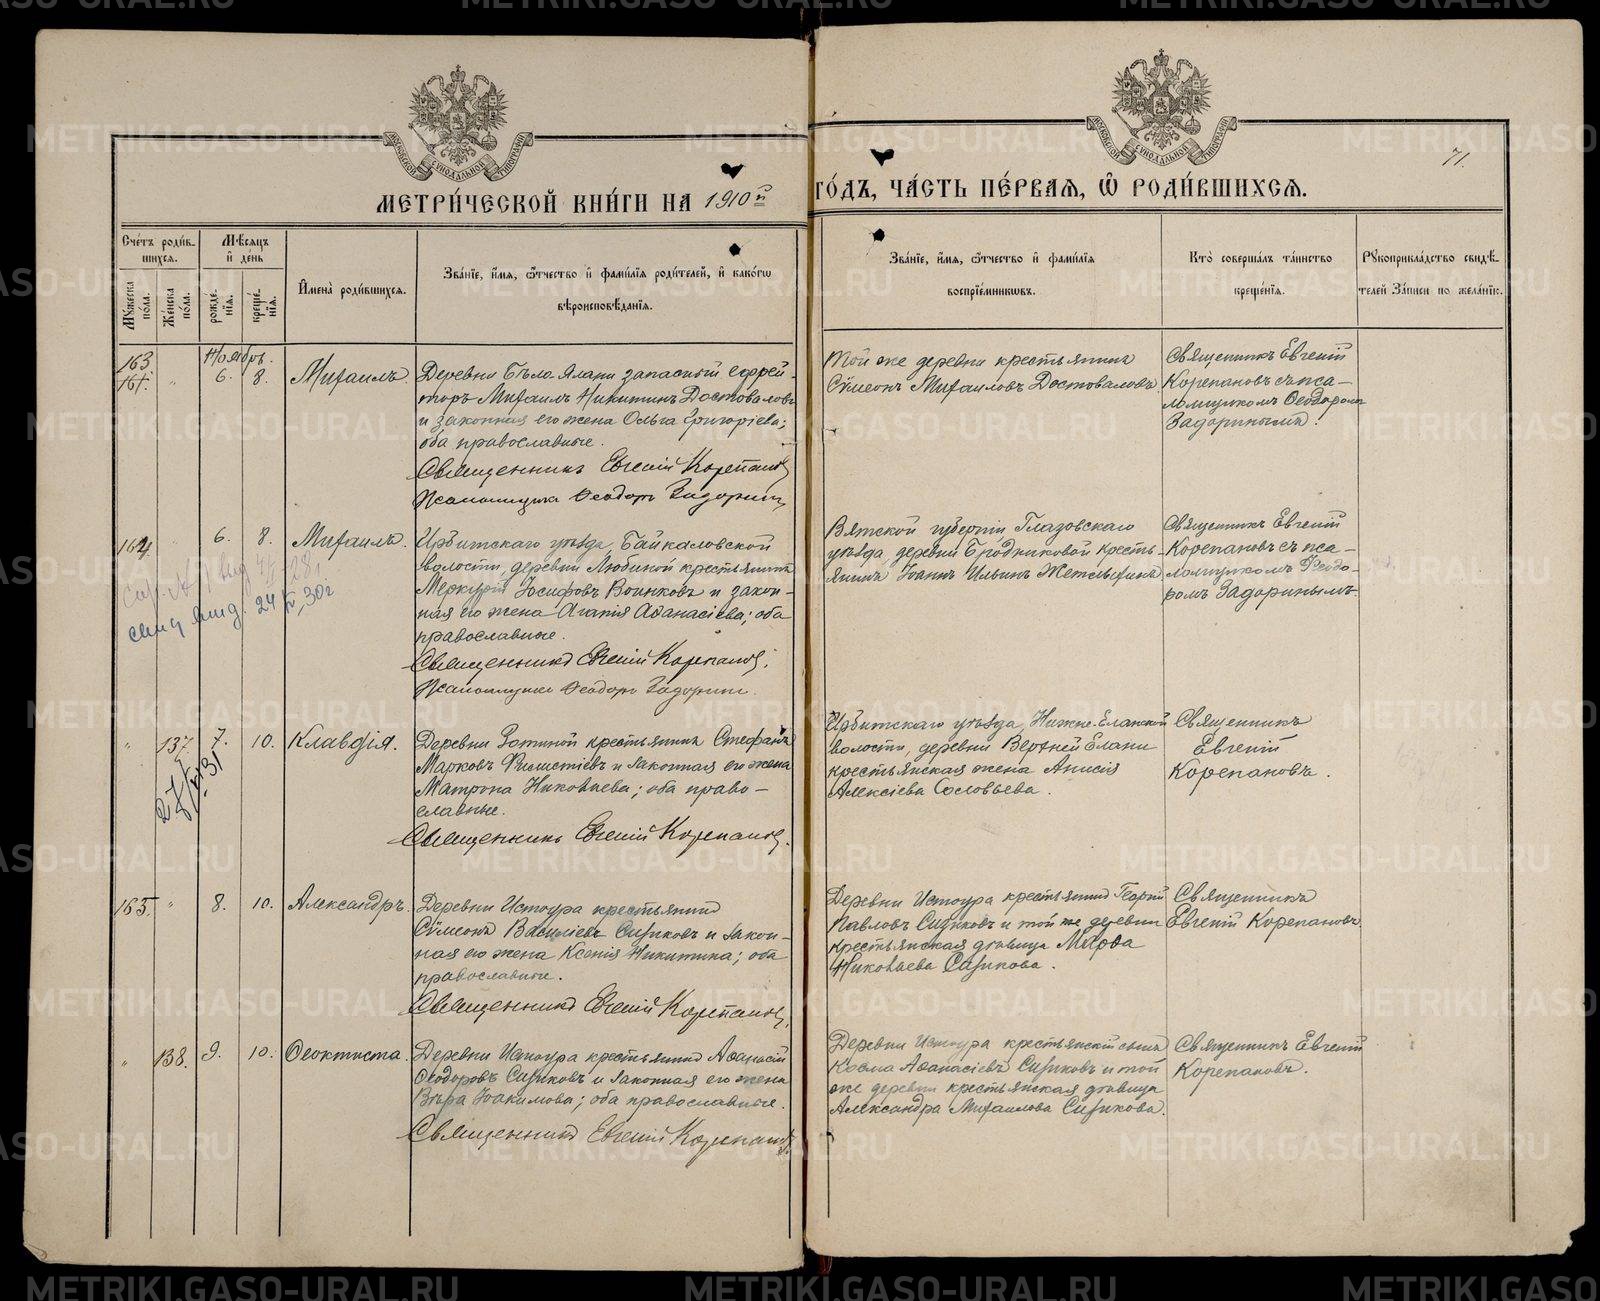 МЕТРИ́ЧЕСКОЙ КНИ́ГИ НА 1910й
ГО́ДЪ, ЧА́СТЬ ПЕ́РВАЯ, Ѽ РОДИ́ВШИХСЯ.
71.
Сче́тъ роди́в-
шихся.
Му́жеска по́ла.
Же́нска по́ла.
Мѣ́сяцъ
и҆ де́нь
рожде́-
нїя.
креще́-
нїя.
И҆мена̀ роди́вшихся.
Зва́нїе, и҆́мя, ѻ҆́тчество и҆ фами́лїя роди́телей, и҆ како́гѡ
вѣроисповѣ́данїя.
Зва́нїе, и҆́мя, ѻ҆́тчество и҆ фами́лїя
воспрїе́мникѡвъ.
Кто̀ соверша́лъ та́инство
креще́нїя.
Рꙋкоприкла́дство свидѣ́-
телей за́писи по жела́нїю.
163.
Ноябрь.
6. 8.
Михаилъ.
Деревни Бѣло-Ялани запасный ефрей-
торъ Михаилъ Никитинъ Достоваловъ
и законная его жена Ольга Григоріева;
оба православные.
Священникъ Евгеній Корепановъ
Псаломщикъ Ѳеодоръ Задоринъ
Той же деревни крестьянинъ
Сѵмеонъ Михаиловъ Достоваловъ.
Священникъ Евгеній
Корепановъ съ пса-
ломщикомъ Ѳеодоромъ
Задоринымъ.
164.
6. 8.
Михаилъ.
Ирбитскаго уѣзда, Байкаловской
волости, деревни Любиной крестьянинъ
Меркурій Іосифовъ Воинковъ и закон-
ная его жена Агапія Аѳанасіева; оба
православные.
Священникъ Евгеній Корепановъ.
Псаломщикъ Ѳеодоръ Задоринъ.
Вятской губерніи, Глазовскаго
уѣзда, деревни Бродниковой кресть-
янинъ Іоаннъ Ильинъ
Священникъ Евгеній
Корепановъ съ пса-
ломщикомъ Ѳеодо-
ромъ Задоринымъ.
24 30 г
" 137. 7. 10.
Клавдія.
Деревни Зотиной крестьянинъ Стефанъ
Марковъ и законная его жена
Матрона Николаева; оба право-
славные.
Священникъ Евгеній Корепановъ.
Ирбитскаго уѣзда, Нижне-Еланской
волости, деревни Верхней Елани
крестьянская жена Анисія
Алексіева Соловьева.
Священникъ
Евгеній
Корепановъ.
165. " 8. 10.
Александръ.
Деревни Истоура крестьянинъ
Сѵмеонъ Василіевъ Сизиковъ и закон-
ная его жена Ксенія Никитина; оба
православные.
Священникъ Евгеній Корепановъ.
Деревни Истоура крестьянинъ Георгій
Павловъ Сизиковъ и той же деревни
крестьянская дѣвица Марѳа
Николаева Сизикова.
Священникъ
Евгеній Корепановъ.
" 138. 9. 10.
Ѳеоктиста.
Деревни Истоура крестьянинъ Аѳанасій
Ѳеодоровъ Сизиковъ и законная его жена
Вѣра Іоакимова; оба православные.
Священникъ Евгеній Корепановъ.
Деревни Истоура крестьянскій сынъ
Косма Аѳанасіевъ Сизиковъ и той
же деревни крестьянская дѣвица
Александра Михаилова Сизикова.
Священникъ Евгеній
Корепановъ.
METRIKI.GASO-URAL.RU